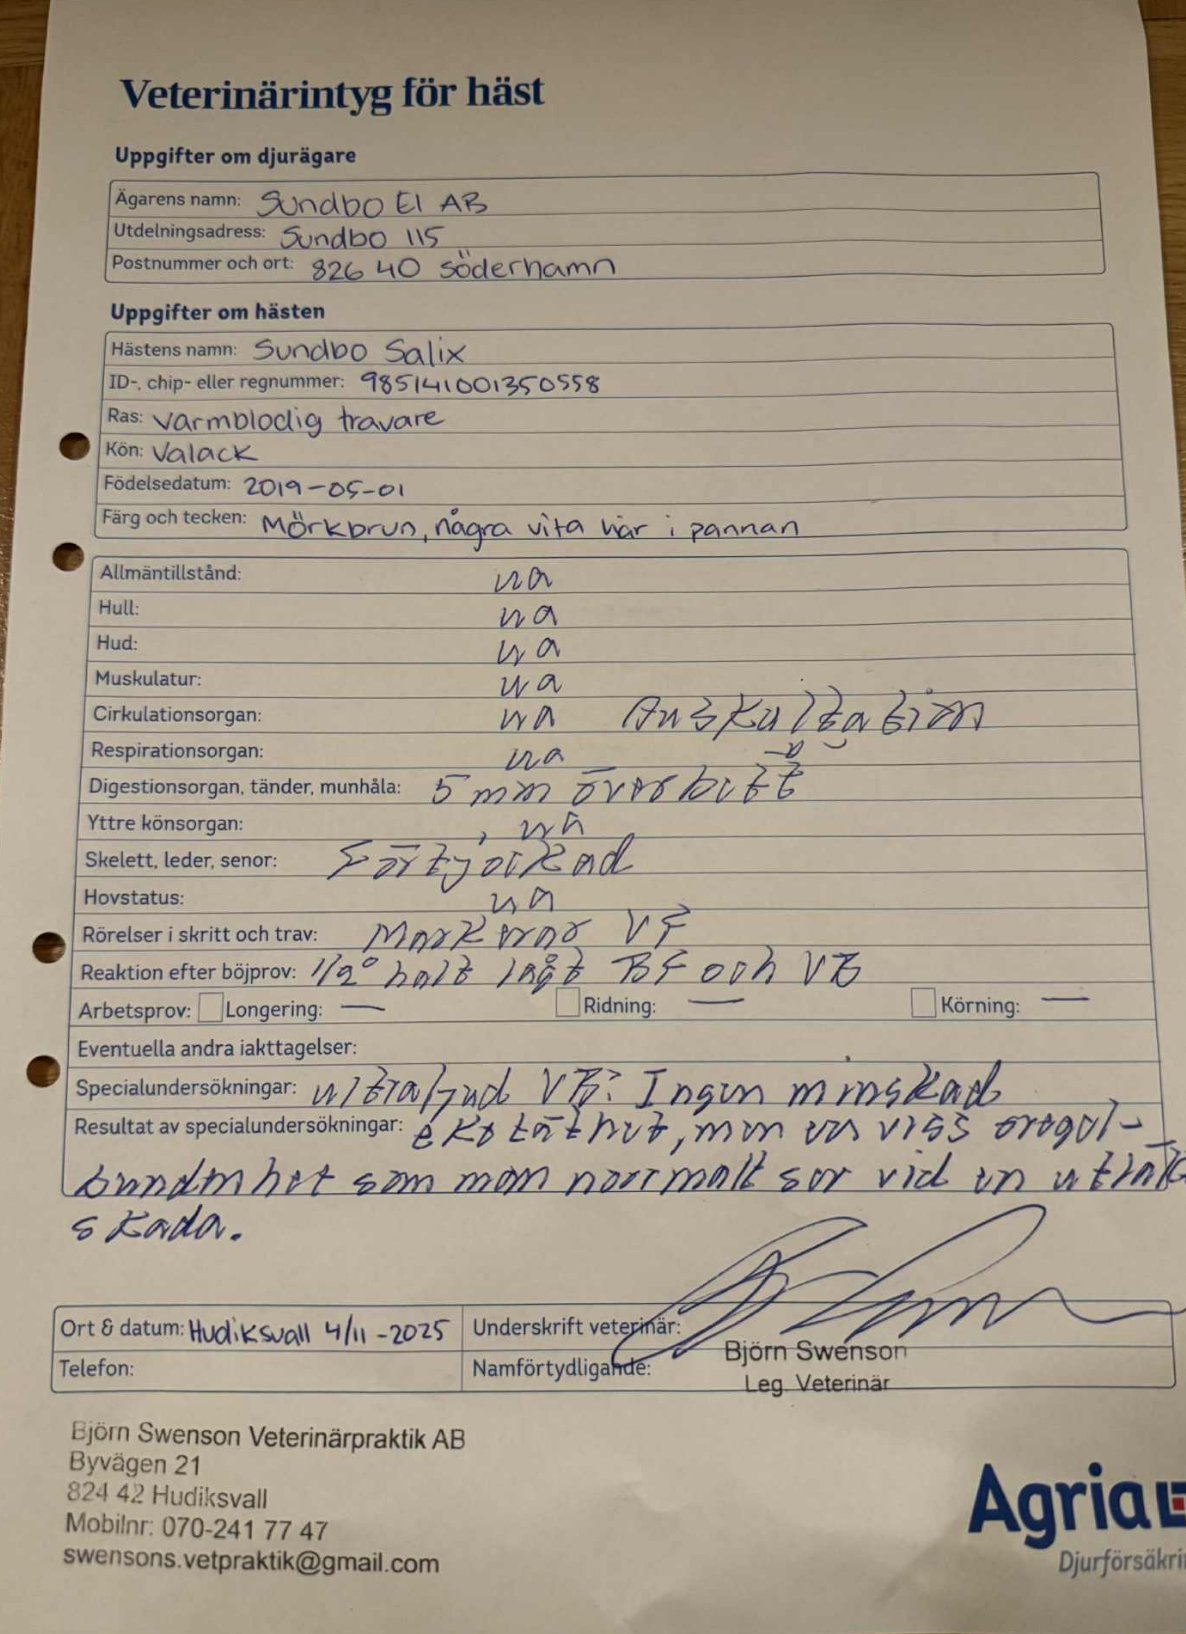 Veterinärintyg för häst
Uppgifter om djurägare
Ägarens namn: Sundbo El AB
Utdelningsadress: Sundbo 115
Postnummer och ort: 826 40 Söderhamn
Uppgifter om hästen
Hästens namn: Sundbo Salix
ID-, chip- eller regnummer: 985141001350558
Ras: Varmblodig travare
Kön: Valack
Födelsedatum: 2019-05-01
Färg och tecken: Mörkbrun, några vita hår i pannan
Allmäntillstånd: ua
Hull: ua
Hud: ua
Muskulatur: ua
Cirkulationsorgan: ua Auskultation
Respirationsorgan: ua
Digestionsorgan, tänder, munhåla: 5 mm överbett
Yttre könsorgan: ua
Skelett, leder, senor: Förtjockad
Hovstatus: ua
Rörelser i skritt och trav: Markerar VF
Reaktion efter böjprov: 1/2° halt lågt BF och VB
Arbetsprov: Longering: — Ridning: — Körning: —
Eventuella andra iakttagelser:
Specialundersökningar: ultraljud VB: Ingen minskad
Resultat av specialundersökningar: ekotäthet, men viss oregel-
bundenhet som man normalt ser vid en
skada.
Ort & datum: Hudiksvall 4/11-2025 Underskrift veterinär:
Telefon: Namförtydligande: Björn Swenson
Leg. Veterinär
Björn Swenson Veterinärpraktik AB
Byvägen 21
824 42 Hudiksvall
Mobilnr: 070-241 77 47
swensons.vetpraktik@gmail.com
Agria
Djurförsäkri